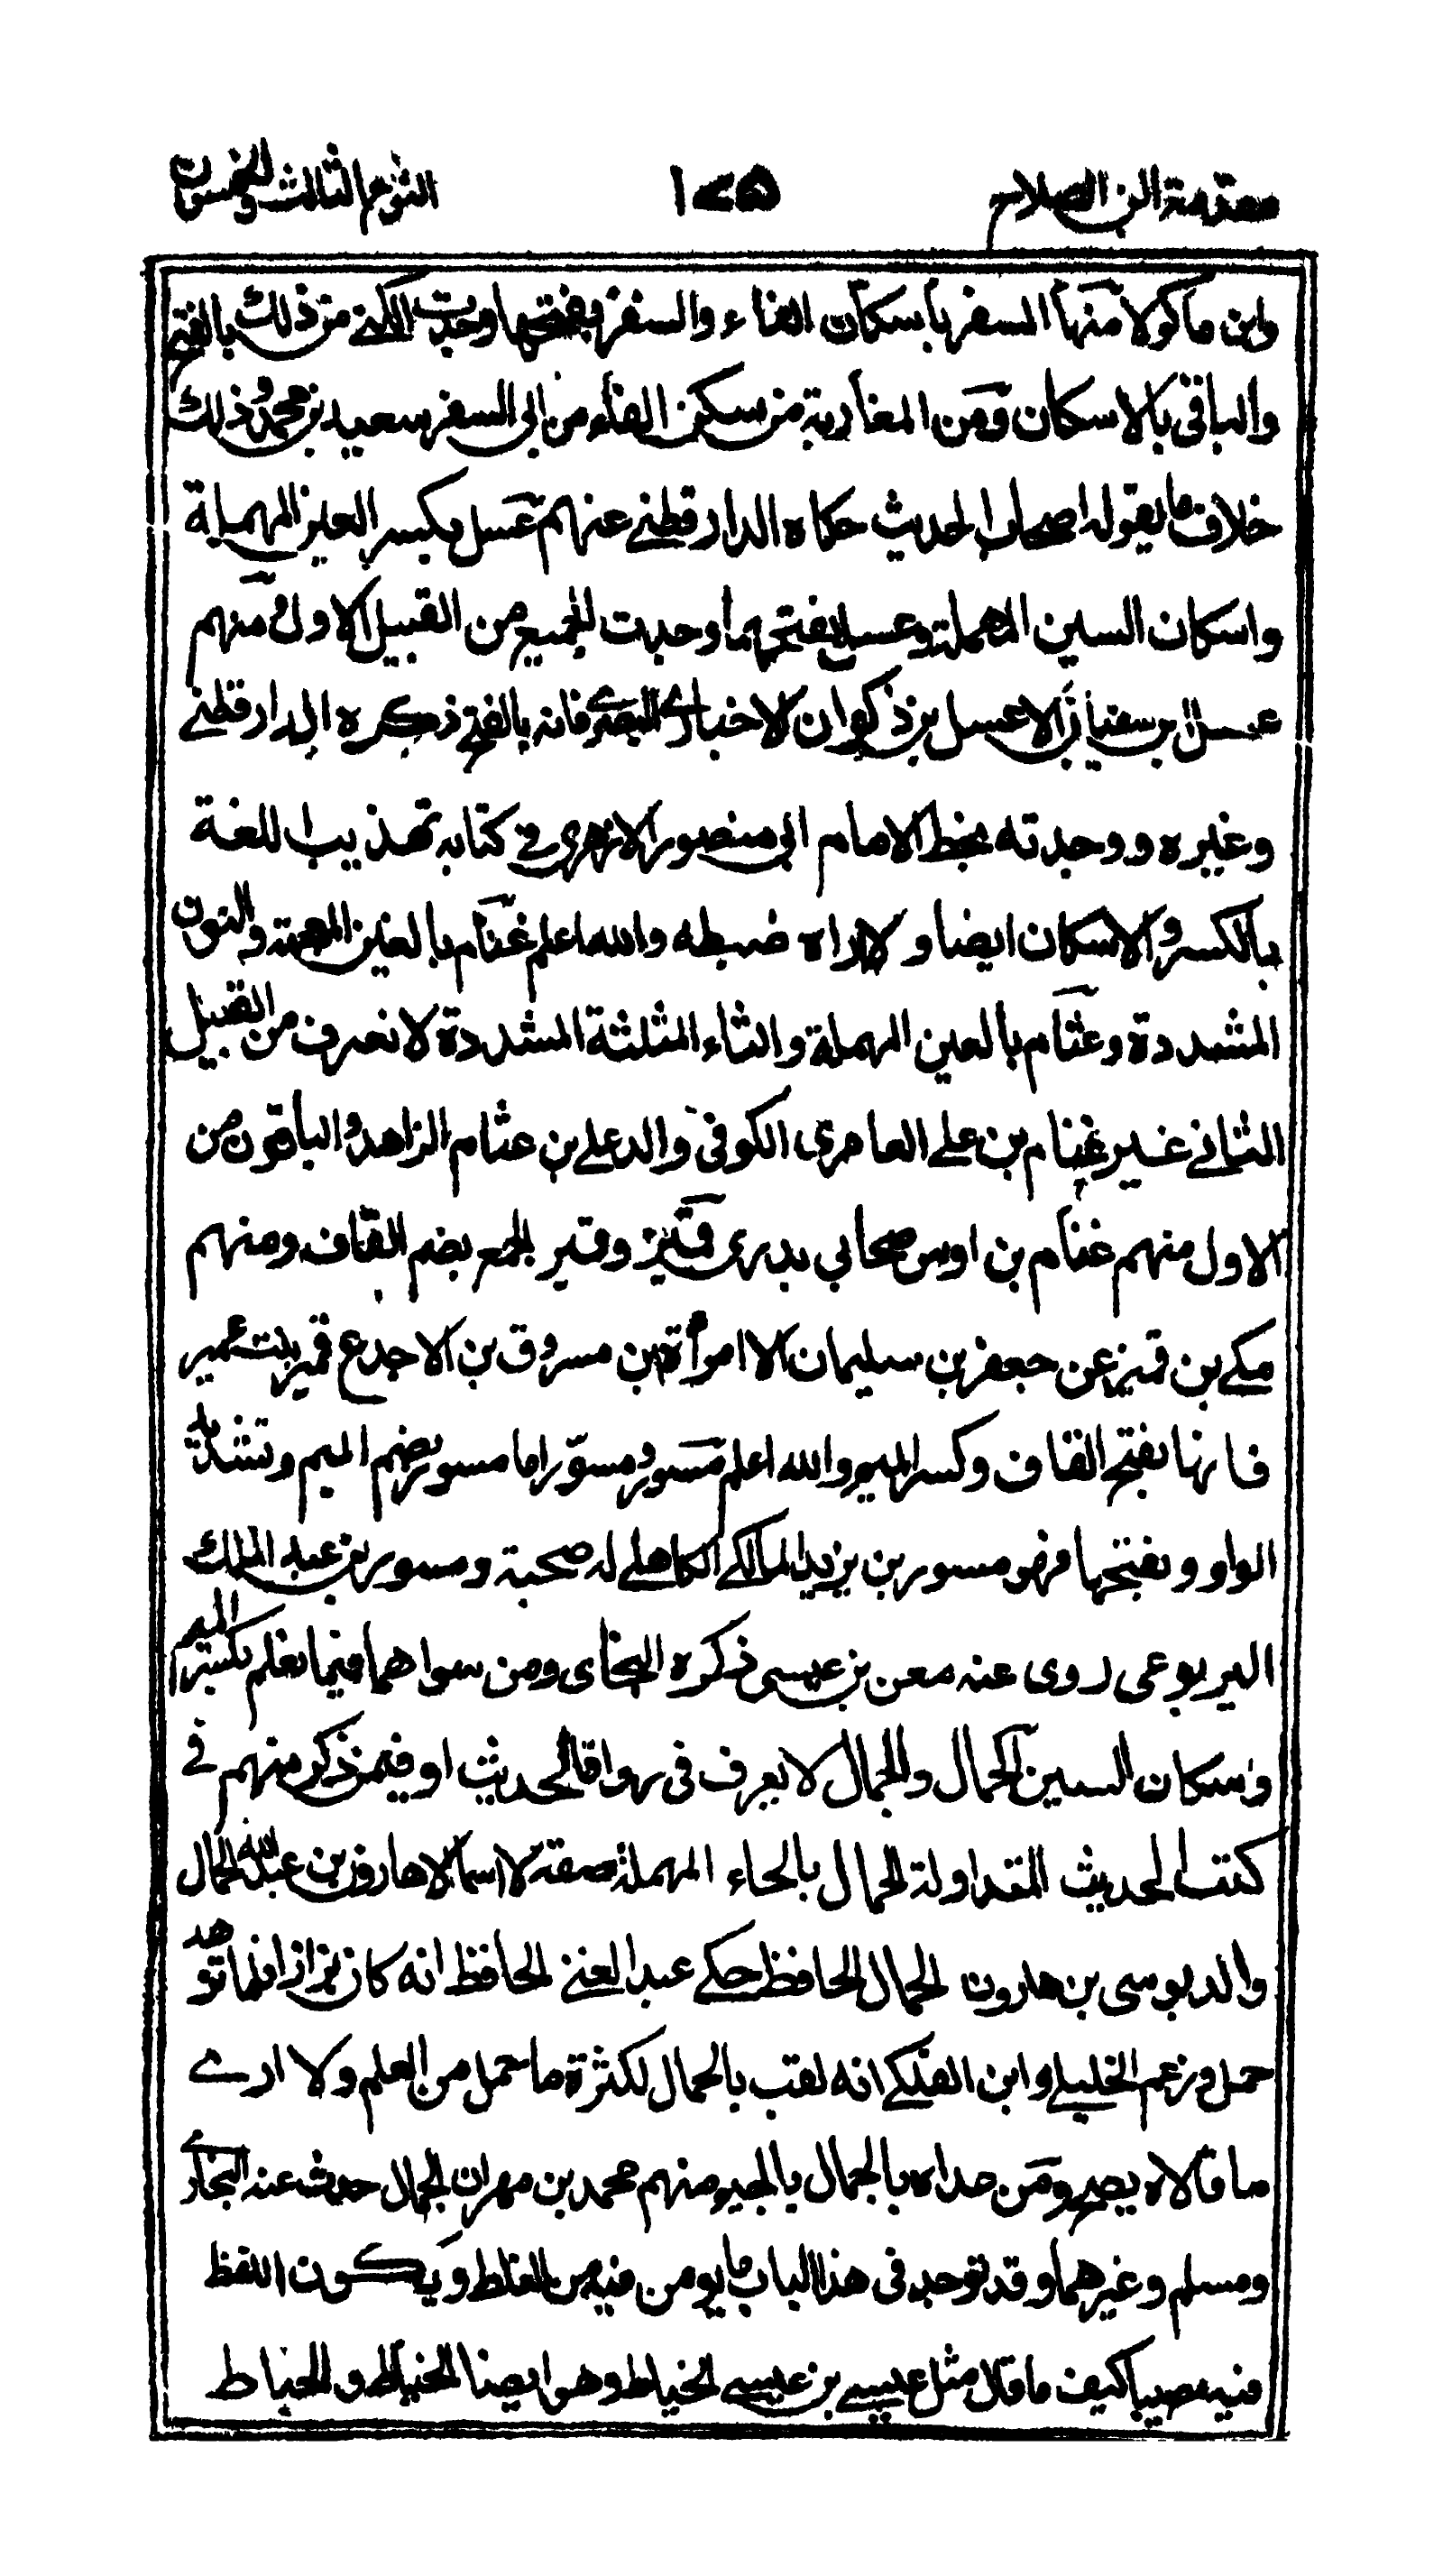 مقدمة ابن الصلاح ١٧٥ النوع الثالث والخمسون
وابن ماكولا منها السفر باسكان الفاء والسفر بفتحها وجدت الكنى من ذلك بالفتح
والباقي بالاسكان ومن المغاربة من سكن الفاء من ابى السفر سعيد بن محمد وذلك
خلاف ما يقوله اصحاب الحديث حكاه الدارقطنے عنهم عسل بكسر العين المهملة
واسكان السين المهملة وعسل بفتحهما وجدت الجميع من القبيل الاول ومنهم
عسل بن سفيان الا عسل بن ذكوان الاخبارے البصرے فانه بالفتح ذكره الدارقطنے
وغيره ووجدته بخط الامام ابى منصور الازهرى فى كتابه تهذيب اللغة
بالكسر والاسكان ايضا ولا اراه ضبطه والله اعلم غنام بالغين المعجمة والنون
المشددة وعثام بالعين المهملة والثاء المثلثة المشددة لا نعرف من القبيل
الثانے غير غنام بن على العامرى الكوفى والد على بن عثام الزاهد والباقون من
الاول منهم غنام بن اوس صحابى بدرى قمير وقمير الجميع بضم القاف ومنهم
مكے بن قمير عن جعفر بن سليمان الا امرأة بن مسروق بن الاجدع قمير بنت عمير
فانها بفتح القاف وكسر الميم والله اعلم مسور ومسوّر اما مسور بضم الميم وتشديد
الواو وبفتحها فهو مسور بن يزيد المالكے الكاهلے له صحبة ومسور بن عبد الملك
اليربوعى روى عنه معن بن عيسى ذكره البخاى ومن سواهما فيما نعلم بكسر الميم
وسكان السين الحمال والجمال لا يعرف فى رواة الحديث او فيمن ذكر منهم فى
كتب الحديث المتداولة الحمال بالحاء المهملة صفة لا اسما الا هارون بن عبدالله الحمال
والد بوسى بن هارون الحمال الحافظ حكے عبد الغنے الحافظ انه كان بزازا فلما تزهد
حمل وزعم الخليلے وابن الفلكے انه لقب بالحمال لكثرة ما حمل من العلم ولا ادرے
ما قالاه يصح ومن عداه بالجمال بالجيم منهم محمد بن مهران الجمال حدث عنه البخارے
ومسلم وغيرهما وقد توجد فى هذا الباب ما يومن فيه من الغلط ويكون اللفظ
فيه مصيبا كيف ما قال مثل عيسے بن عيسے الخياط وهو ايضا الحنباط والخباط